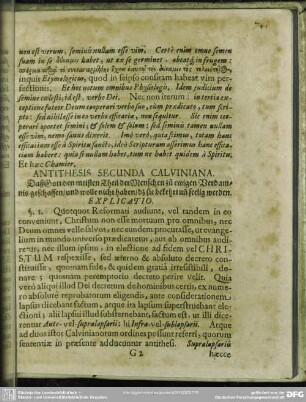 non est verum, semini nullam esse vim. Certè enim omne semen
suam in se δύναμιν habet, ut ex se germinet, abeatq; in frugem:
inquit Etymologicus, quod in seipso consitam habeat vim per-
fectionis. Et hoc notum omnibus Physiologis. Idem judicium de
semine cœlesti, id est, verbo Dei. Nec non iterum: in tertia ex-
ceptione fatetur Deum cooperari verbo suo, cùm prædicato, tum scri-
pto: sed nihil esse in eo verbo efficaciæ, non sequitur. Sic enim coo-
perari oportet semini, & solem & solum: sed semini tamen nullam
esse vim, nemo sanus dixerit. Imò verò, quia scimus, totam hanc
efficaciam esse à Spiritu sancto, ideò Scripturam asserimus hanc effica-
ciam habere: quia si nullam habet, tum ne habet quidem à Spiritu.
Et hæc Chamier.
ANTITHESIS SECUNDA CALVINIANA.
Daß Gott den meisten Theil der Menschen zu ewigen Verdam-
nis geschaffen, und wolle nicht haben, dz sie bekehret und seelig werden.
EXPLICATIO.
§. 1. Quotquot Reformati audiunt, vel tandem in eo
conveniunt, Christum non esse mortuum pro omnibus, nec
Deum omnes velle salvos, nec eundem procurasse, ut evange-
lium in mundo universo prædicaretur, aut ab omnibus audi-
retur, nec illum ipsum, in electione ad fidem vel CHRI-
STUM respexisse, sed æterno & absoluto decreto con-
stituisse, quosnam fide, & quidem gratiâ irresistibili, do-
nare; quosnam peremptorio decreto perire velit. Quia
verò aliqui illud Dei decretum de hominibus certis, ex nu-
mero absolutè reprobatorum eligendis, ante considerationem
lapsus ficebant factum, atque ita lapsum superstruebant ele-
ctioni; alii lapsui illud substernebant, factum est, ut illi dice-
rentur Ante- vel supralapsarii; hi Infra- vel sublapsarii. Atque
ad duos istos Calvinianorum ordines possunt referri, quorum
sententiæ in præsente adducuntur antithesi. Supralapsariis
G 2 hæcce